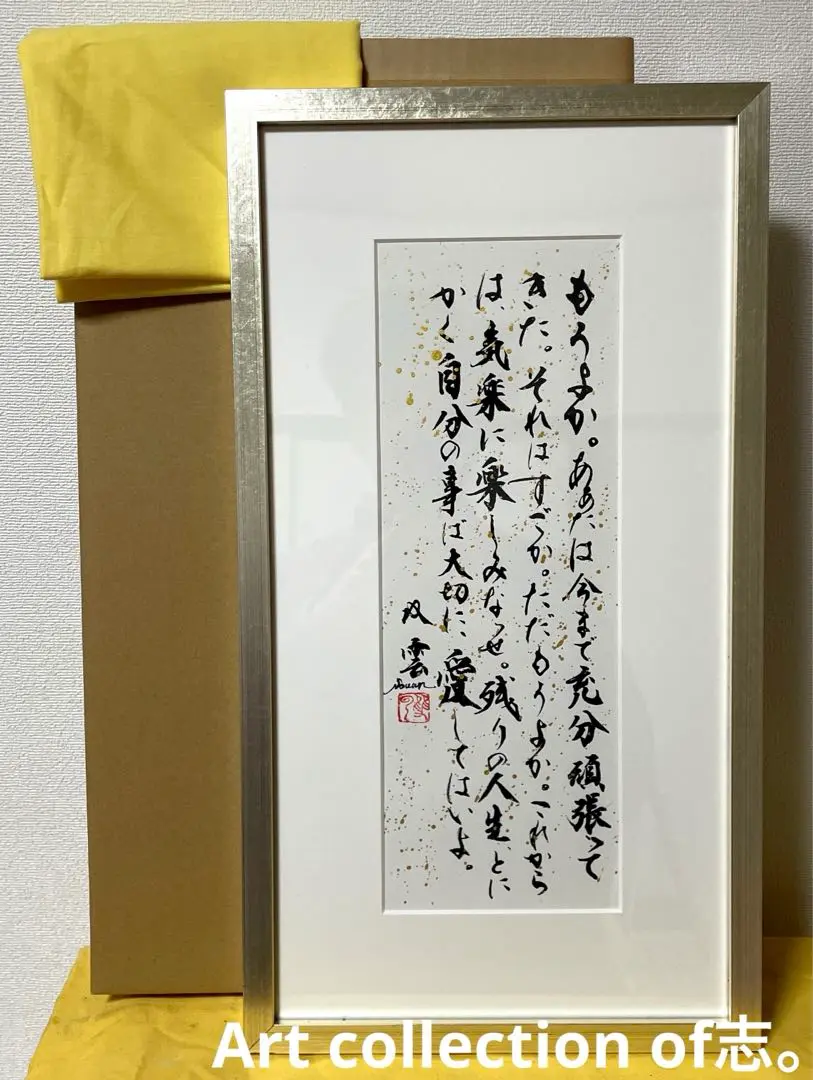 もうよか。あなたは今まで充分頑張って
きた。それはすごか。ただもうよか。これから
は、気楽に楽しみなっせ。残りの人生とに
かく自分の事ば大切に、愛してはいよ。
双雲
Art collection of志。